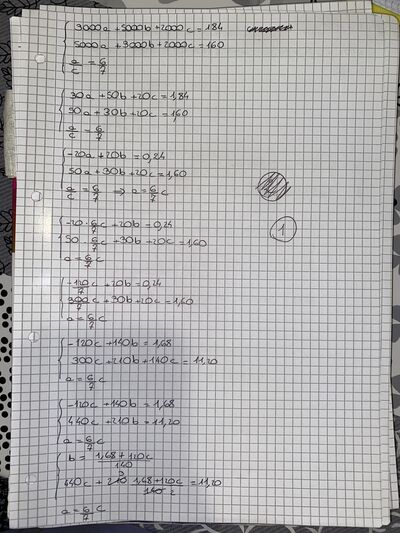 3000a + 5000b + 2000c = 184
5000a + 3000b + 2000c = 160
a/c = 6/7
30a + 50b + 20c = 1,84
50a + 30b + 20c = 1,60
a/c = 6/7
-20a + 20b = 0,24
50a + 30b + 20c = 1,60
a/c = 6/7 ⇒ a = 6/7 c
-20 · 6/7 c + 20b = 0,24
50 · 6/7 c + 30b + 20c = 1,60
a = 6/7 c
1
-120/7 c + 20b = 0,24
300/7 c + 30b + 20c = 1,60
a = 6/7 c
-120c + 140b = 1,68
300c + 210b + 140c = 11,20
a = 6/7 c
-120c + 140b = 1,68
440c + 210b = 11,20
a = 6/7 c
b = (1,68 + 120c)/140
440c + 210 3 (1,68 + 120c)/140 2 = 11,20
a = 6/7 c